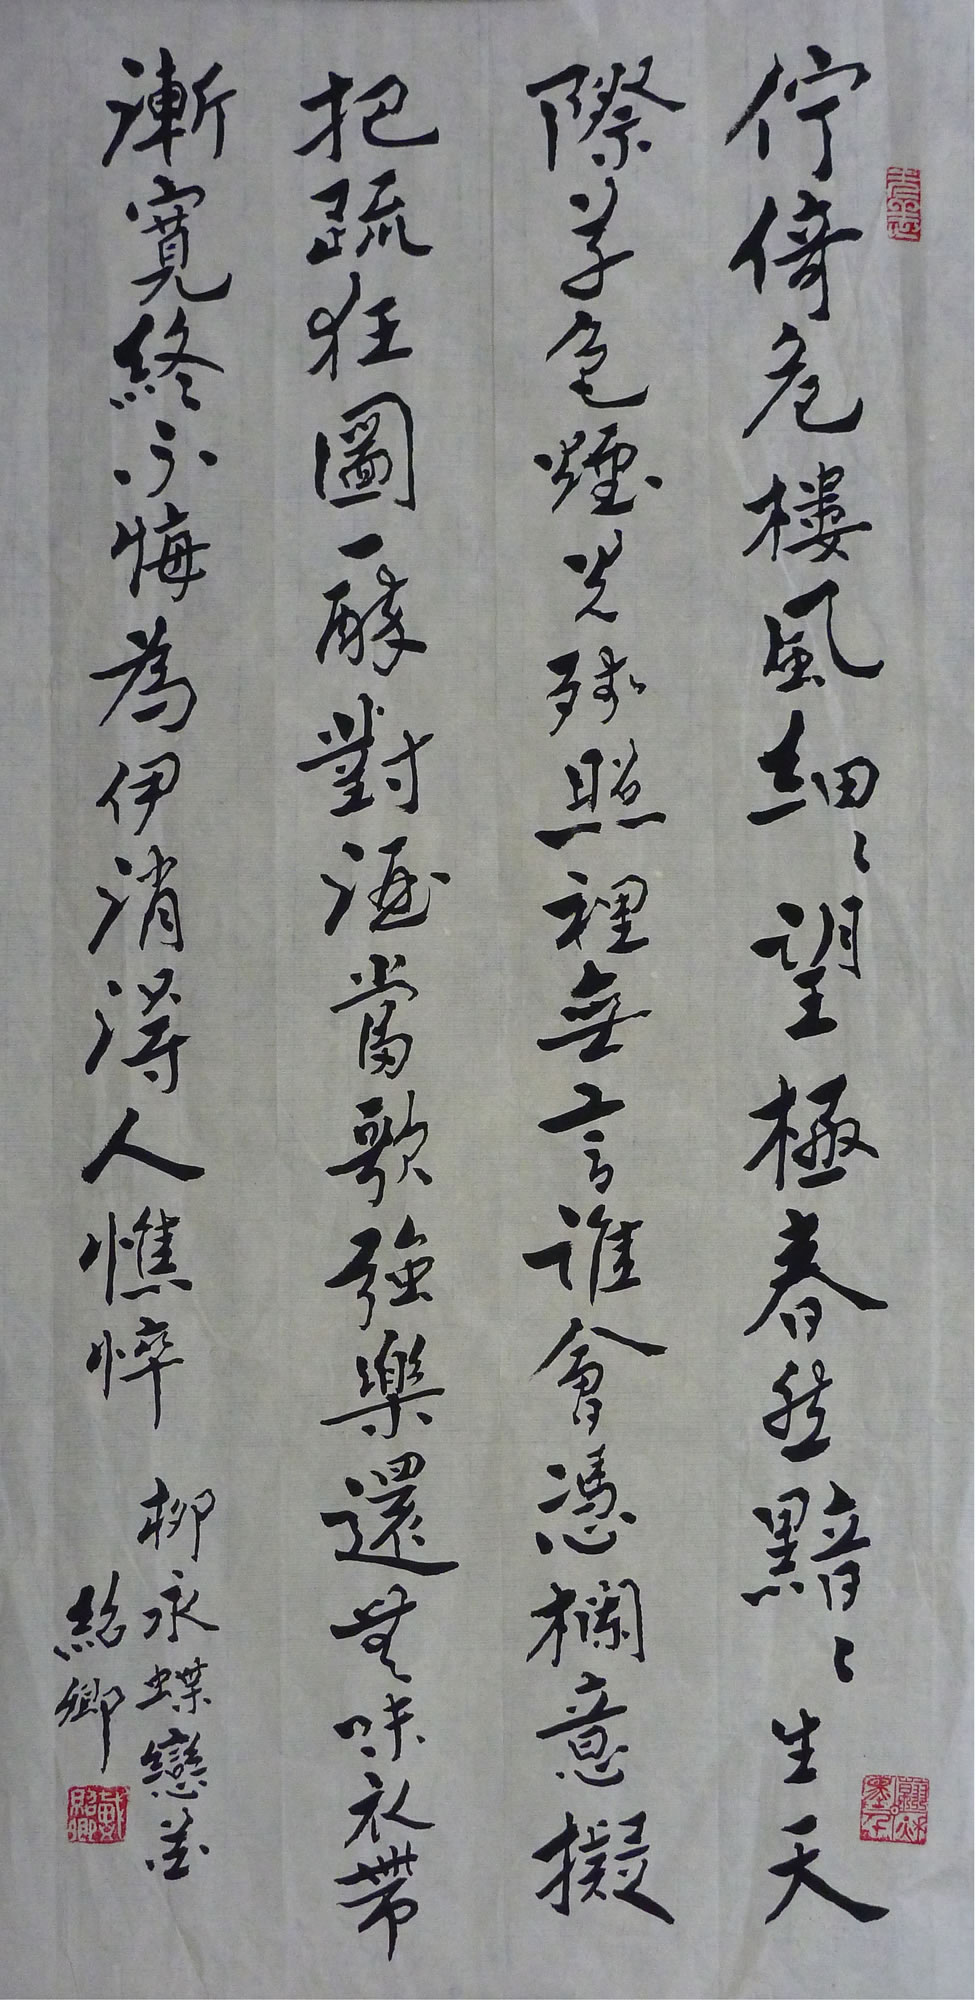 佇倚危樓風細〻望極春愁黯〻生天
際草色煙光殘照裡無言誰會憑欄意擬
把疏狂圖一醉對酒當歌強樂還無味衣帶
漸寬終不悔為伊消得人憔悴
柳永蝶戀花
紹卿
戴紹卿